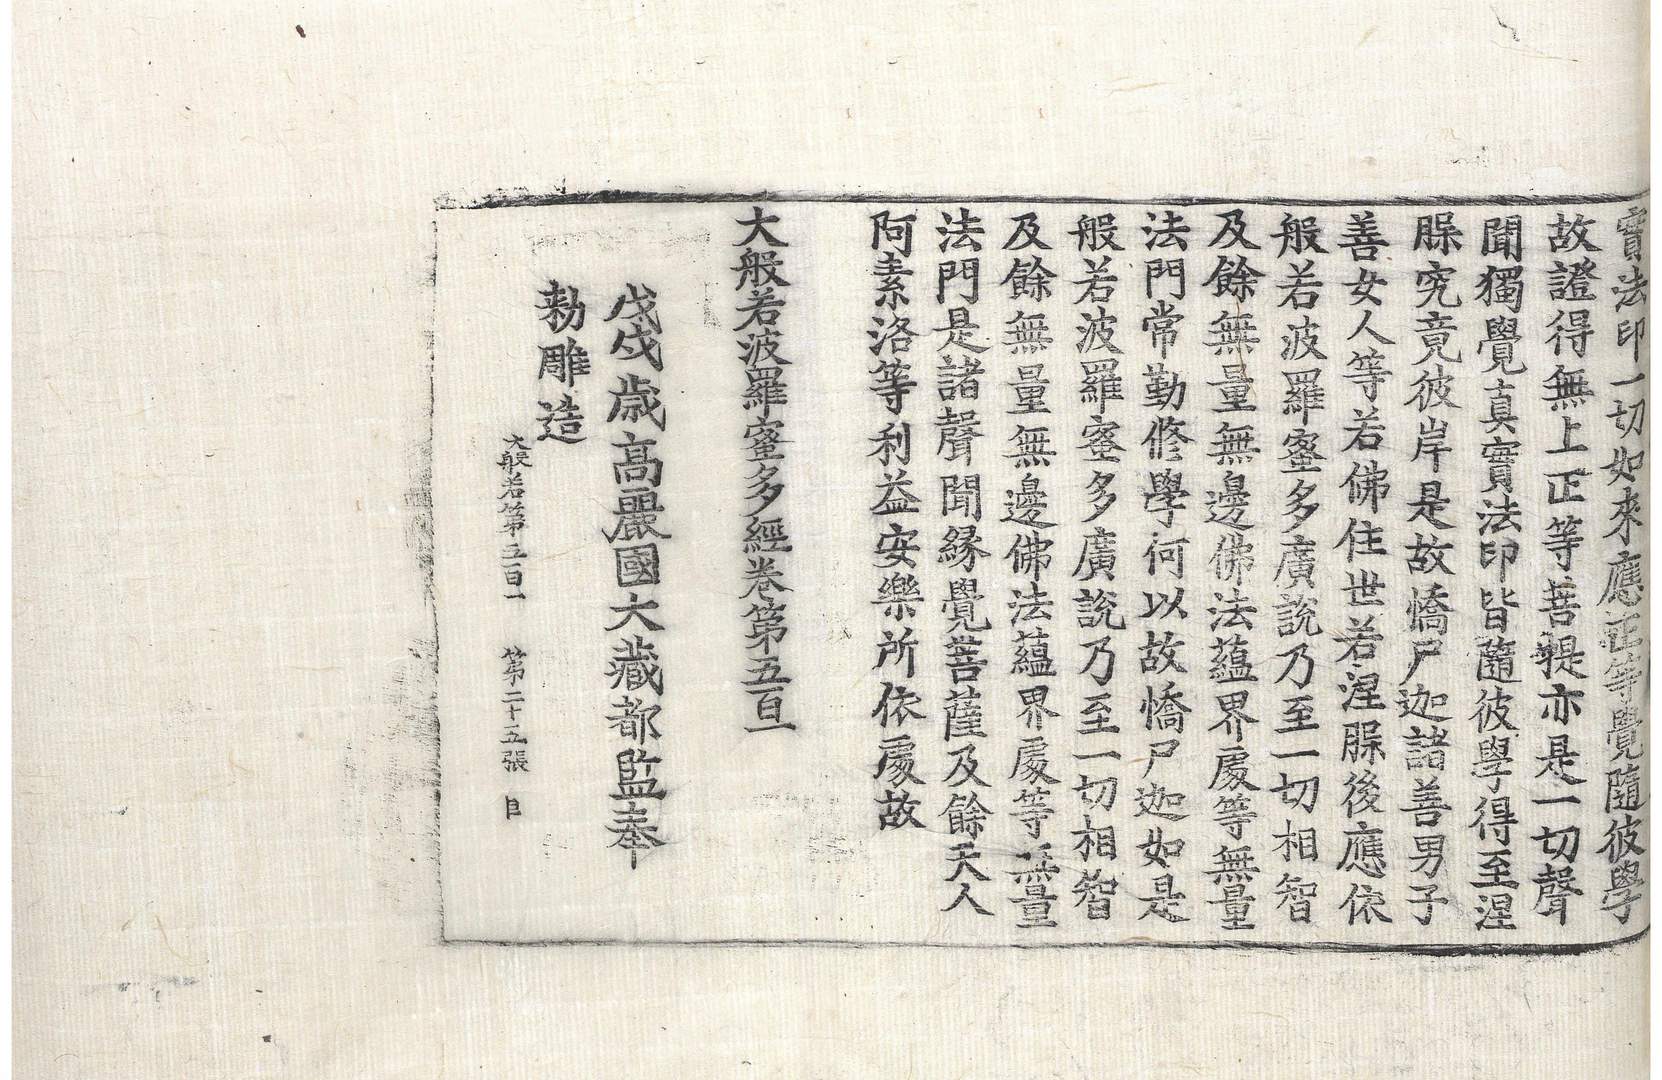 實法印一切如來應正等覺隨彼學
故證得無上正等菩提亦是一切聲
聞獨覺真實法印皆隨彼學得至涅
脲究竟彼岸是故憍尸迦諸善男子
善女人等若佛住世若涅脲後應依
般若波羅蜜多廣說乃至一切相智
及餘無量無邊佛法蘊界處等無量
法門常勤修學何以故憍尸迦如是
般若波羅蜜多廣說乃至一切相智
及餘無量無邊佛法蘊界處等無量
法門是諸聲聞緣覺菩薩及餘天人
阿素洛等利益安樂所依處故
大般若波羅蜜多經卷第五百一
戊戌歲高麗國大藏都監奉
勑雕造
大般若第五百一 第二十五張